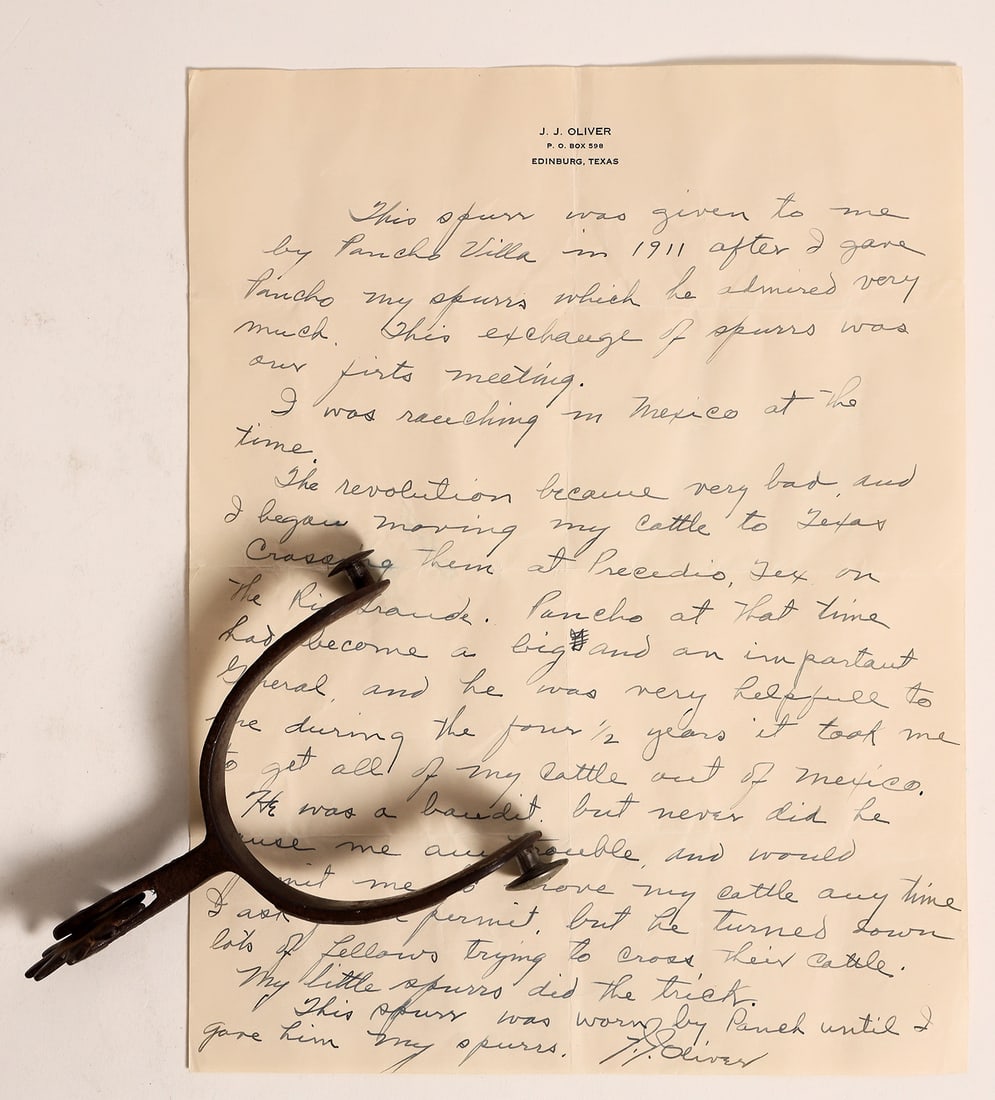 J. J. OLIVER
P. O. BOX 598
EDINBURG, TEXAS
This spurr was given to me
by Pancho Villa in 1911 after I gave
Pancho my spurrs which he admired very
much. This exchange of spurrs was
our firts meeting.
I was ranching in Mexico at the
time.
The revolution became very bad, and
I began moving my cattle to Texas
Crossing them at Precedio, Tex on
the Rio Grande. Pancho at that time
had become a big and an important
General and he was very helpfull to
me during the four 1/2 years it took me
to get all of my cattle out of Mexico.
He was a bandit, but never did he
cause me any trouble, and would
me move my cattle any time
I ask permit, but he turned down
lots of fellows trying to cross their cattle.
My little spurrs did the trick.
This spurr was worn by Panch until I
gave him my spurrs. J.J. Oliver